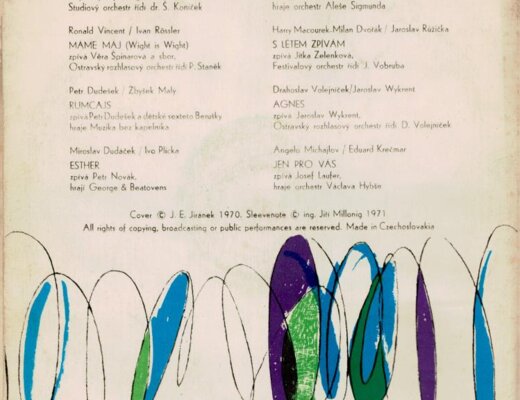 Studiový orchestr řídí dr. Š. Koníček
Ronald Vincent / Ivan Rössler
MÁME MÁJ (Wight is Wight)
zpívá Věra Špinarová a sbor,
Ostravský rozhlasový orchestr řídí P. Staněk
Petr Dudešek / Zbyšek Malý
RUMCAJS
zpívá Petr Dudešek a dětské sexteto Berušky
hraje Muzika bez kapelníka
Miroslav Dudáček / Ivo Plicka
ESTHER
zpívá Petr Novák,
hrají George & Beatovens
hraje orchestr Aleše Sigmunda
Harry Macourek, Milan Dvořák / Jaroslav Růžička
S LÉTEM ZPÍVÁM
zpívá Jitka Zelenková,
Festivalový orchestr řídí J. Vobruba
Drahoslav Volejníček/Jaroslav Wykrent
AGNES
zpívá Jaroslav Wykrent,
Ostravský rozhlasový orchestr řídí D. Volejníček
Angelo Michajlov / Eduard Krečmar
JEN PRO VÁS
zpívá Josef Laufer,
hraje orchestr Václava Hybše
Cover © J. E. Jiránek 1970. Sleevenote © ing. Jiří Millonig 1971
All rights of copying, broadcasting or public performances are reserved. Made in Czechoslovakia